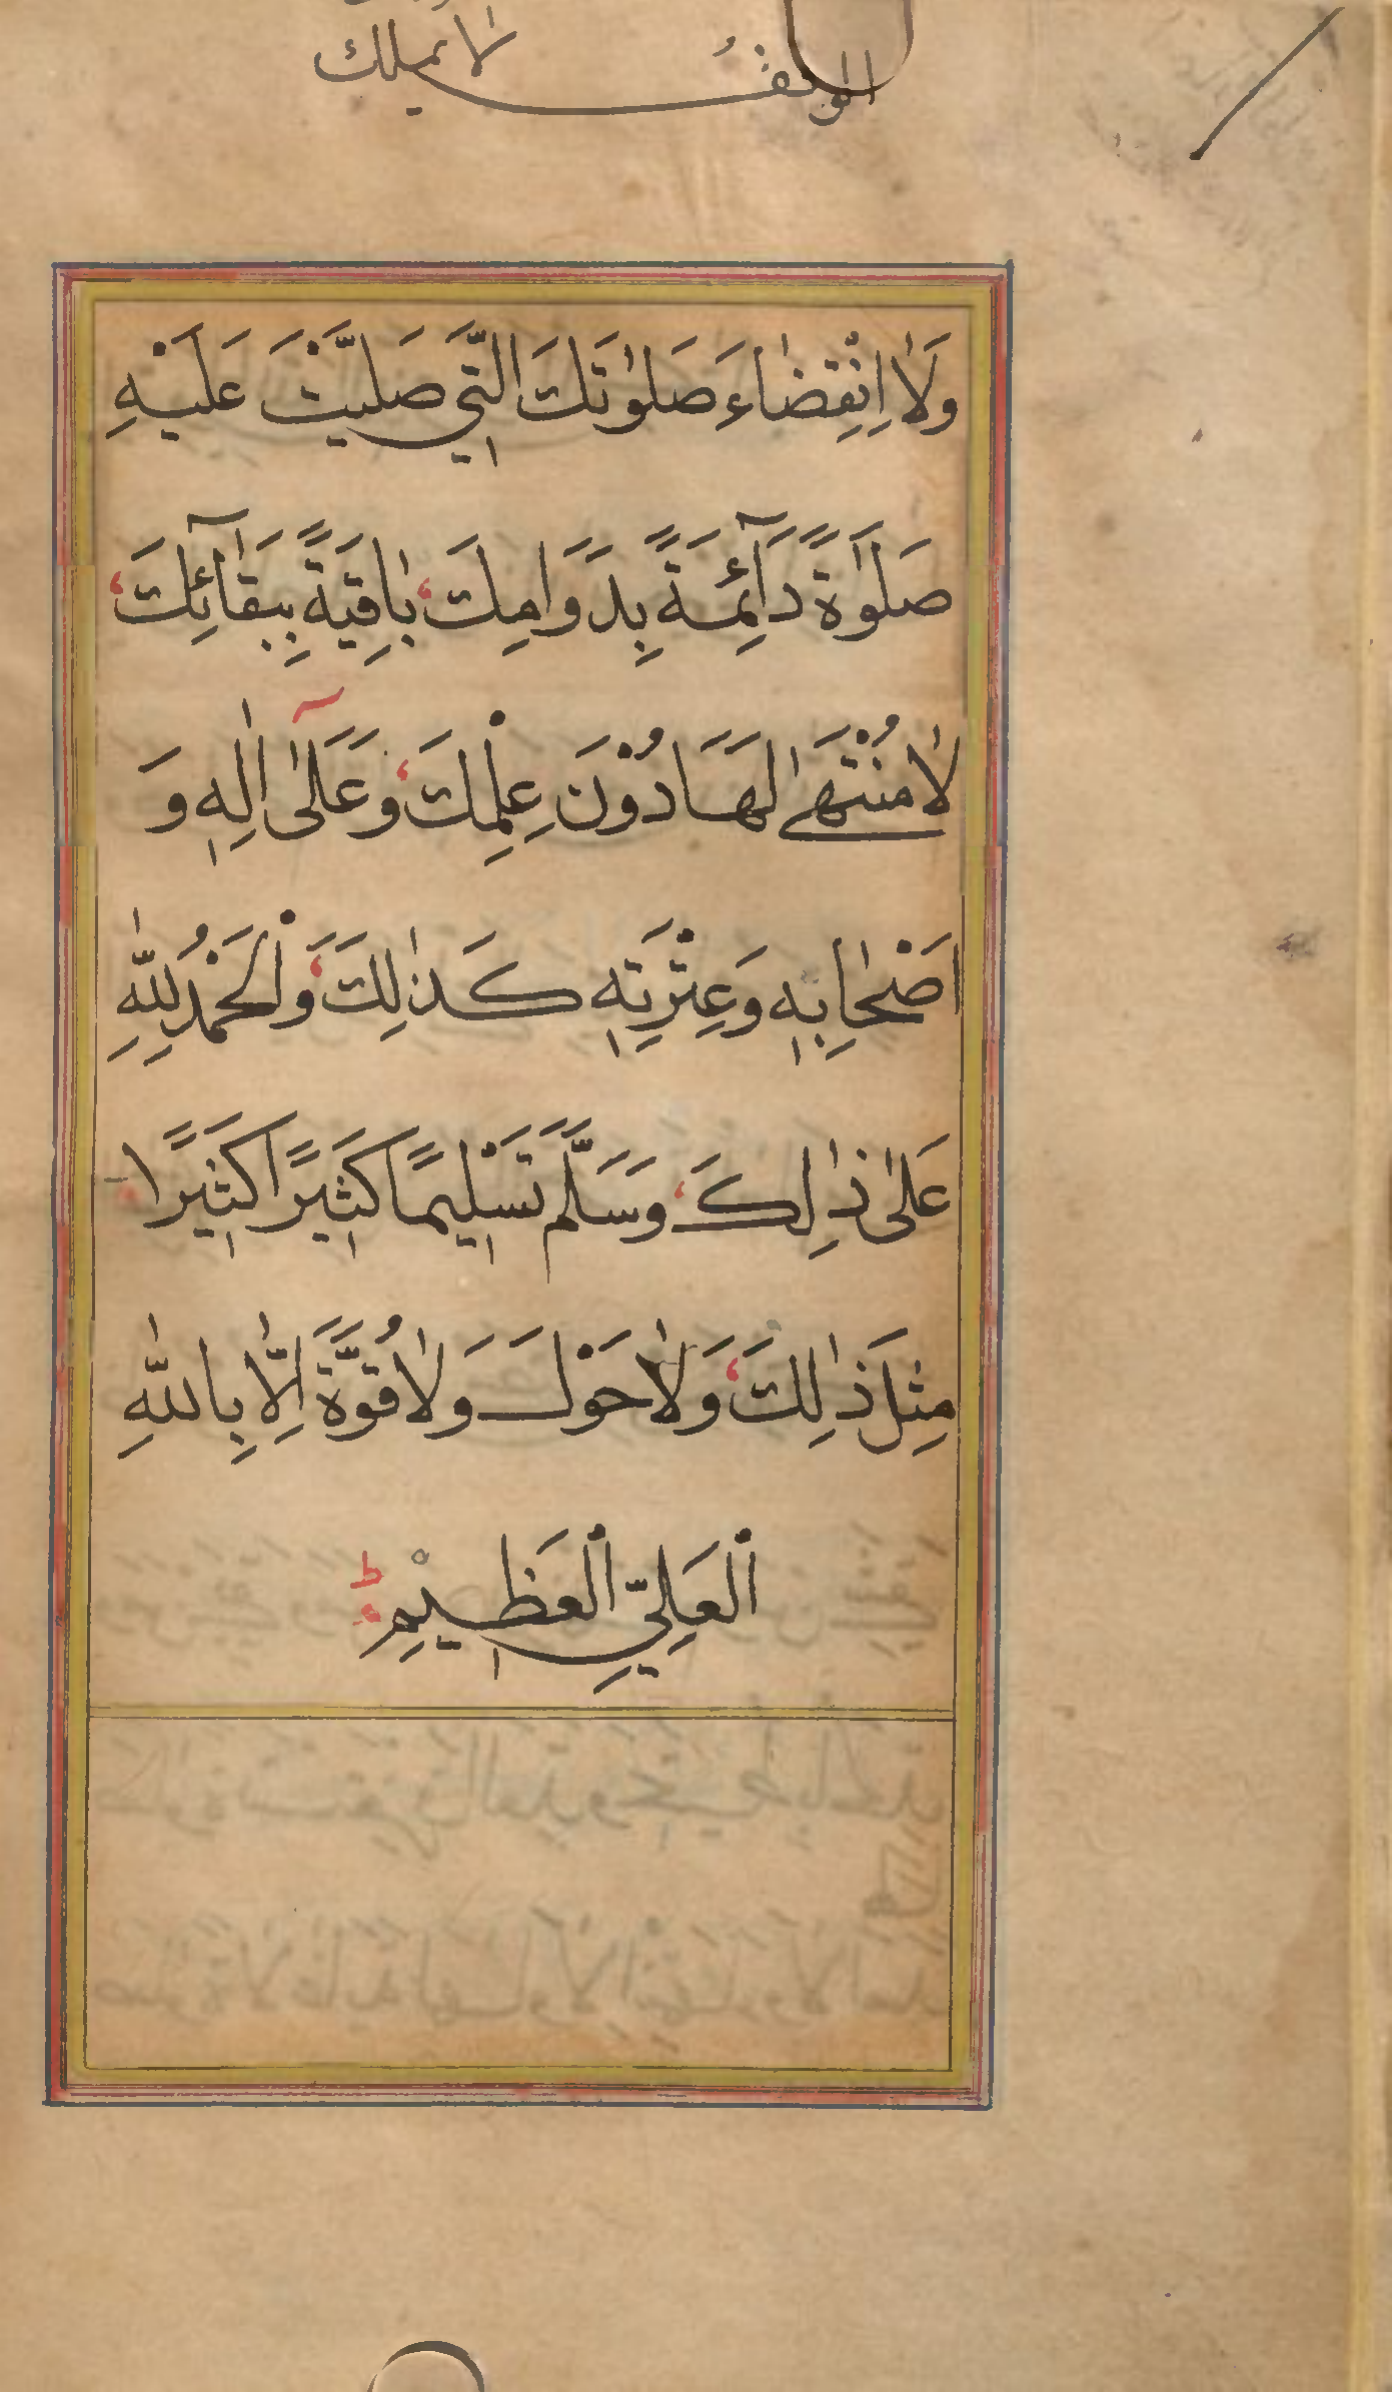 الوقف لا يملك
وَلَا اِنْقِضَاءَ صَلٰوتَكَ الَّتِي صَلَّيْتَ عَلَيْهِ
صَلَوٰةً دَآئِمَةً بِدَوَامِكَ، بَاقِيَةً بِبَقَآئِكَ،
لَا مُنْتَهٰى لَهَا دُوْنَ عِلْمِكَ، وَعَلٰى اٰلِهٖ وَ
اَصْحَابِهٖ وَعِتْرَتِهٖ كَذٰلِكَ، وَالْحَمْدُ لِلّٰهِ
عَلٰى ذٰلِكَ، وَسَلَّمَ تَسْلِيمًا كَثِيرًا كَثِيرًا
مِثْلَ ذٰلِكَ، وَلَا حَوْلَ وَلَا قُوَّةَ اِلَّا بِاللّٰهِ
الْعَلِيِّ الْعَظِيْمِ ط